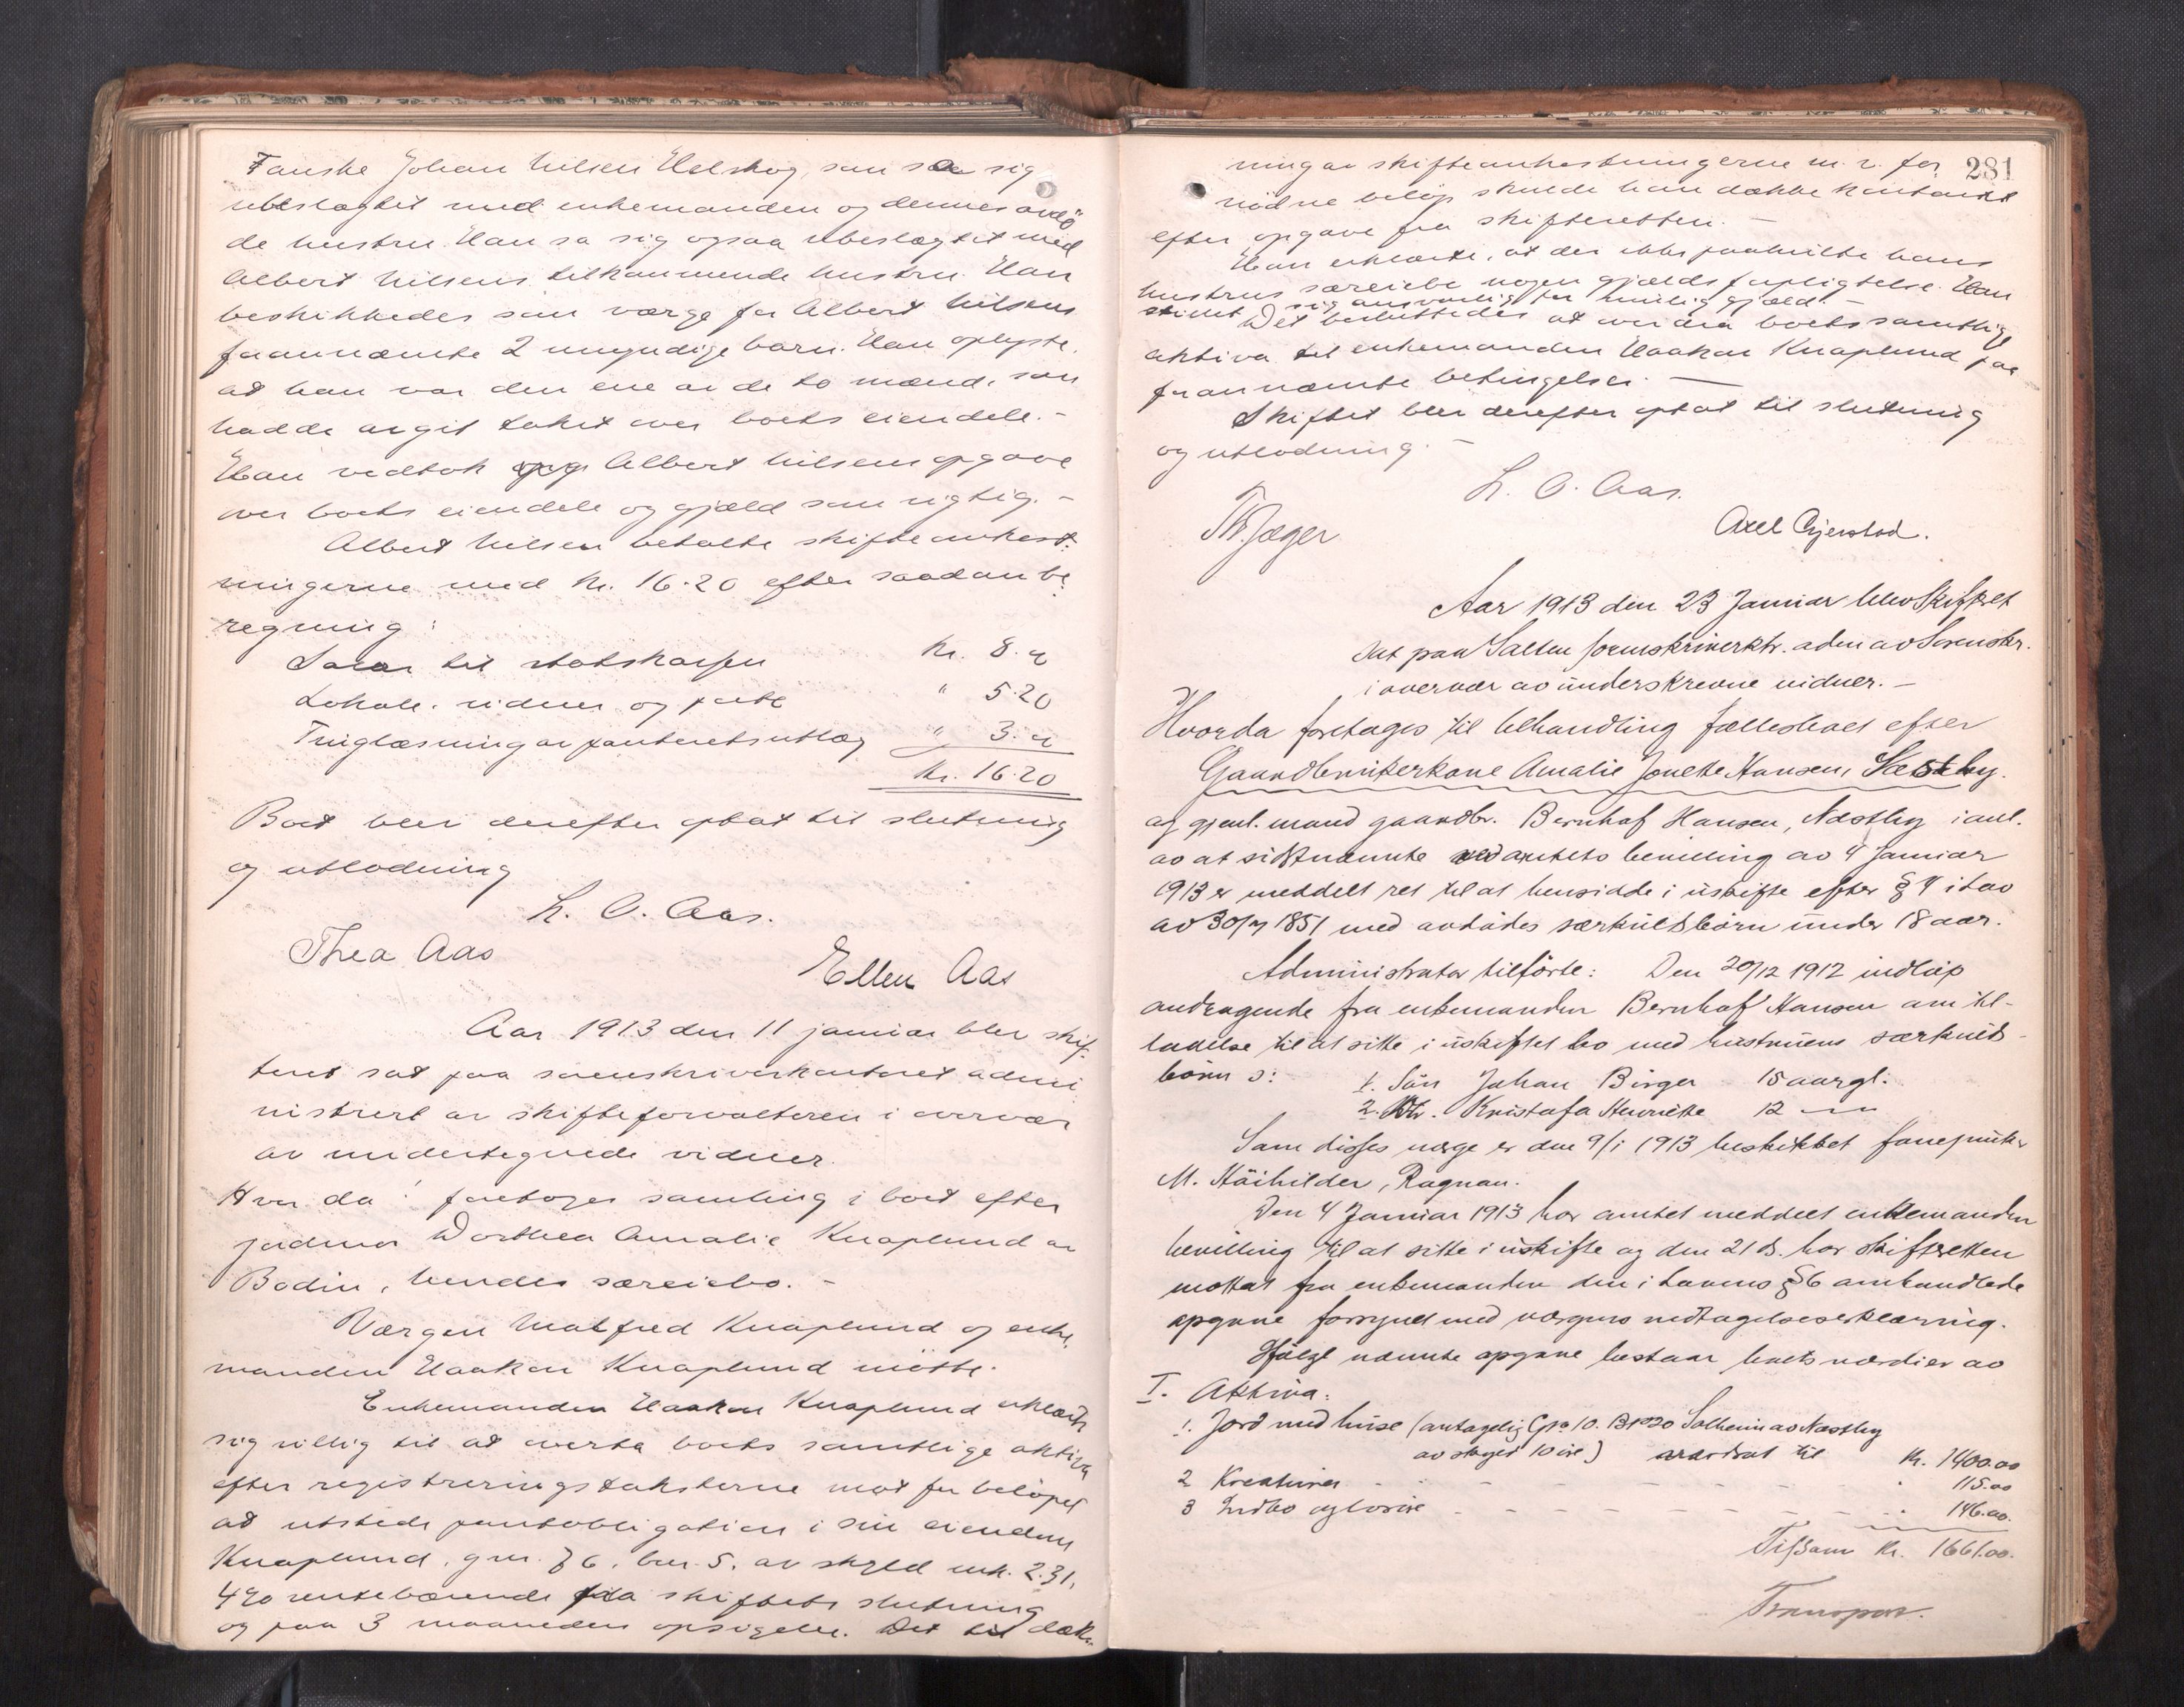 Fauske Johan Nilsen Helskog, som sa sig
ubeslægtet med enkemanden og dennes avdö
de hustru. Han sa sig ogsaa ubeslægtet med
Albert Nilsens tilkommende hustru. Han
beskikkedes som værge for Albert Nilsens
forannævnte 2 umyndige barn. Han oplyste,
at han var den ene av de to mænd, som
hadde avgit takst over boets eiendele.-
Han vedtok Albert Nilsens opgave
over boets eiendele og gjæld som rigtig.-
Albert Nilsen betalte skifteomkost:
ningerne med Kr. 16.20 efter saadan be:
regning:
til statskassen Kr. 8.
Lokale, vidner og porto " 5.20
Tinglæsning av panteretsutlæg " 3.
Kr. 16.20
Boet blev derefter optat til slutning
og utlodning
L. O. Aas.
Thea Aas
Ellen Aas
Aar 1913 den 11 januar blev skif-
teret sat paa sorenskriverkontoret admi
nistrert av skifteforvalteren i overvær
av undertegnede vidner.
Hvor da: foretoges samling i boet efter
jordmor Dorthea Amalie Knaplund av
Bodin, hendes særeiebo.-
Værgen Malfred Knaplund og enke
manden Haakon Knaplund mötte.
Enkemanden Haakon Knaplund erklærte
sig villig til at overta boets samtlige aktiva
efter registreringstaksterne mot for belöpet
at utstede pantobligation i sin eiendom
Knaplund, gnr. 76, bnr. 5, av skyld mk. 2.31,
4% rentebærende fra skiftets slutning
og paa 3 maaneders opsigelse. Det til dæk-
281
ning av skifteomkostningerne m. v. for
nödne belöp skulde han dække kontant
efter opgave fra skifteretten.-
Han erklærte, at der ikke paahvilte hans
hustrus særeiebo nogen gjældsforpligtelse. Han
stillet sig ansvarlig for mulig gjæld.-
Det besluttedes at overdra boets samtlige
aktiva til enkemanden Haakon Knaplund paa
forannævnte betingelser.-
Skiftet blev derefter optat til slutning
og utlodning.-
L. O. Aas.
Th. Jæger
Axel Gjerstad.
Aar 1913 den 23 Januar blev Skifteret
sat paa Salten sorenskriverktr. adm av Sorenskr.
i overvær av underskrevne vidner.-
Hvorda foretages til behandling fællesboet efter
Gaardbrukerkone Amalie Jonette Hansen, Næstby.
og gjenl. mand gaardbr. Bernhof Hansen, Næstby i anl.
av at sidstnævnte ved amtets bevilling av 4 Januar
1913 er meddelt ret til at hensidde i uskifte efter § 4 i lov
av 30/7 1851 med avdödes særkuldsbörn under 18 aar.
Administrator tilförte: Den 20/12 1912 indløp
andragende fra enkemanden Bernhof Hansen om til-
ladelse til at sitte i uskiftet bo med hustruens særkulds-
börn ɔ: 1. Sön Johan Birger 15 aar gl.
2. Dtr. Kristofa Henriette 12 — " —
Som disses værge er den 9/1 1913 beskikket
M. Höihilder, Rognan.
Den 4 Januar 1913 har amtet meddelt enkemanden
bevilling til at sitte i uskifte og den 21 ds. har skifteretten
mottat fra enkemanden den i lovens § 6 omhandlede
opgave forsynet med værgens vedtagelseserklæring.
Ifölge nævnte opgave bestaar boets værdier av
I. Aktiva:
1. Jord med huse (antagelig Gno 10. Bno 20 Solheim av Næstby
av skyld 10 öre) værdsat til Kr. 1400.00
2 Kreaturer - - - - - - - - " 115.00
3 Indbo og lösöre - - - - - - - " 146.00.
Tilsam Kr. 1661.00.
Transport.